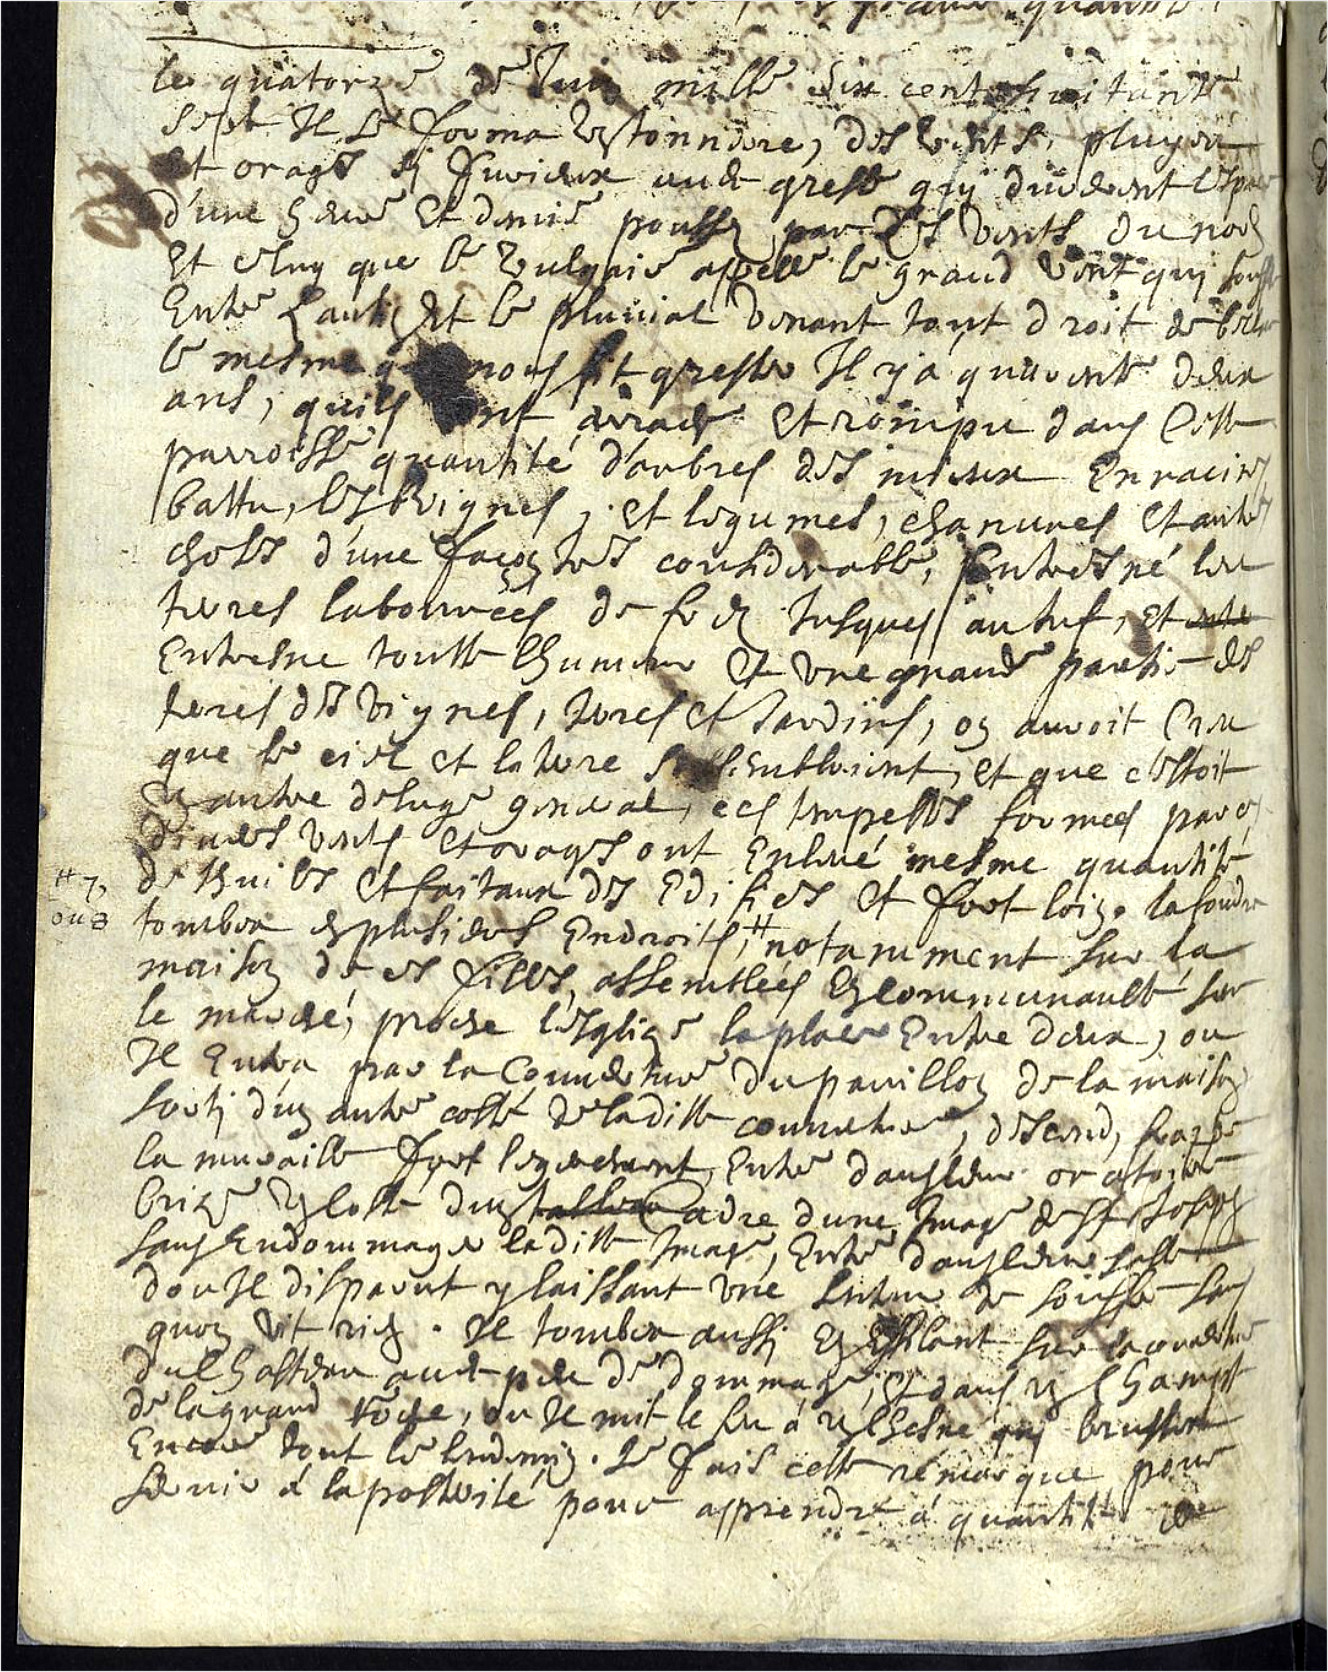 le quatorze de Juin mille six cent huitante
sept Il se forma un tonnerre, des vents, pluyes
et orages si furieux avec gresle qui durerent l'espace
d'une heure et demie poussez par des vents du nord
Et celuy que le vulgaire appelle le grand vent qui souffle
Entre l'autan et le pluvial venant tout droit de
le mesme nous fit gresle Il y a quarente deux
ans, quils ont arraché et rompu dans cette
parroisse quantité d'arbres des mieux enracinez
battu, les vignes, et legumes, chanures et autres
choses d'une façon tres considerable, Entresné les
terres labourées de fond Jusques au tuf, et
Entresne toutte l'humeur et une grande partie des
terres des vignes, terres et Jardins, on auroit creu
que le ciel et la terre s'assembloient, et que c'estoit
un autre deluge general, ces tempestes formees par ces
diuers vents et orages ont Enleué mesme quantité
de thuiles et faitaux des Edifices et fort loin. la foudre
# 7
ou 8
tomba en plusieurs Endroits, # notamment sur la
maison de ces filles, assemblées en communaulté sur
le marché, proche l'esglise la place Entre deux, ou
Il Entra par la couuerture du pauillon de la maison
sorti d'un autre costé de laditte couuerture, descend, frappe
la muraille fort legerement, Entre dans leur oratoire
brise un coste du cadre d'une Image de st Joseph
sans Endommager laditte Image, Entre dans leur salle
dou Il disparut y laissant une senteur de souffre sans
quon vit rien. Il tomba aussi en sifflant sur la couuerture
du Chasteau auec peu de dommage, et dans un champt
de la grand Roche, ou Il mit le feu à un chesne qui brusloit
Encore tout le lendemain. Je fais cette remarque pour
seruir à la posterité pour apprendre à quantité de